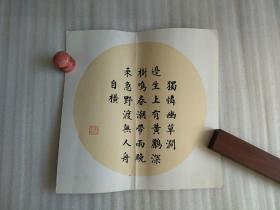 獨憐幽草澗
邊生上有黃鸝深
樹鳴春潮帶雨晚
來急野渡無人舟
自橫